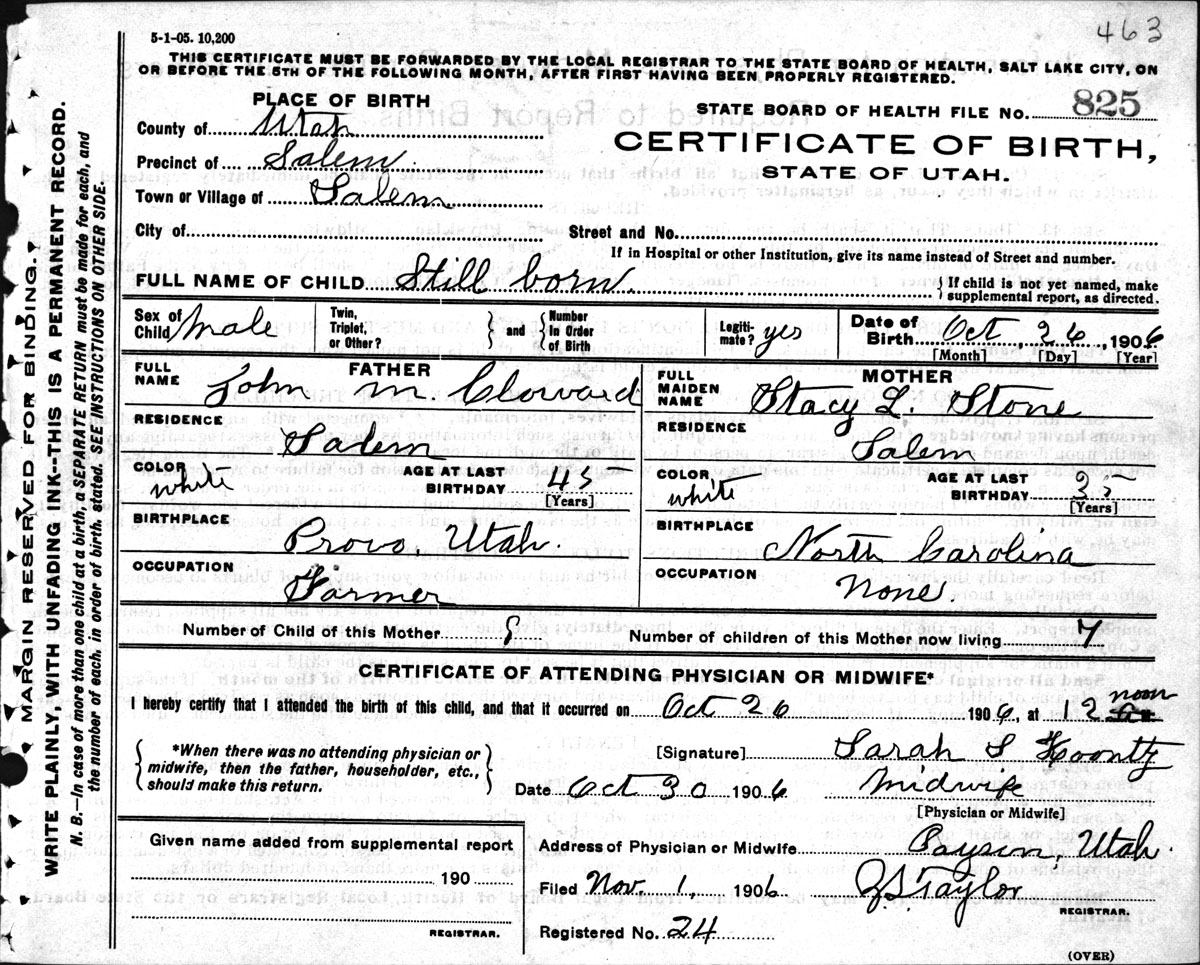 463
5-1-05. 10,200
THIS CERTIFICATE MUST BE FORWARDED BY THE LOCAL REGISTRAR TO THE STATE BOARD OF HEALTH, SALT LAKE CITY, ON
OR BEFORE THE 5TH OF THE FOLLOWING MONTH, AFTER FIRST HAVING BEEN PROPERLY REGISTERED.
PLACE OF BIRTH
STATE BOARD OF HEALTH FILE No. 825
County of Utah
CERTIFICATE OF BIRTH,
Precinct of Salem
STATE OF UTAH.
Town or Village of Salem
City of Street and No.
If in Hospital or other Institution, give its name instead of Street and number.
FULL NAME OF CHILD Still born { If child is not yet named, make supplemental report, as directed.
Sex of Child Male Twin, Triplet, or Other? } and { Number In Order of Birth Legiti-mate? yes Date of Birth Oct, 26, 1906
[Month] [Day] [Year]
FATHER
FULL NAME John M. Cloward
RESIDENCE
Salem
COLOR white AGE AT LAST BIRTHDAY 43
[Years]
BIRTHPLACE
Provo, Utah.
OCCUPATION
Farmer
MOTHER
FULL MAIDEN NAME Stacy L. Stone
RESIDENCE
Salem
COLOR white AGE AT LAST BIRTHDAY 35
[Years]
BIRTHPLACE
North Carolina
OCCUPATION
None.
Number of Child of this Mother 8 Number of children of this Mother now living 7
CERTIFICATE OF ATTENDING PHYSICIAN OR MIDWIFE*
I hereby certify that I attended the birth of this child, and that it occurred on Oct 26 1906, at 12 noon
{ *When there was no attending physician or midwife, then the father, householder, etc., should make this return. }
[Signature] Sarah S Koontz
Date Oct 30 1906 Midwife
[Physician or Midwife]
Given name added from supplemental report
190
REGISTRAR.
Address of Physician or Midwife Payson, Utah.
Filed Nov. 1, 1906 Taylor
REGISTRAR.
Registered No. 24
(OVER)
MARGIN RESERVED FOR BINDING.
WRITE PLAINLY, WITH UNFADING INK--THIS IS A PERMANENT RECORD.
N. B.—In case of more than one child at a birth, a SEPARATE RETURN must be made for each, and
the number of each, in order of birth, stated. SEE INSTRUCTIONS ON OTHER SIDE.